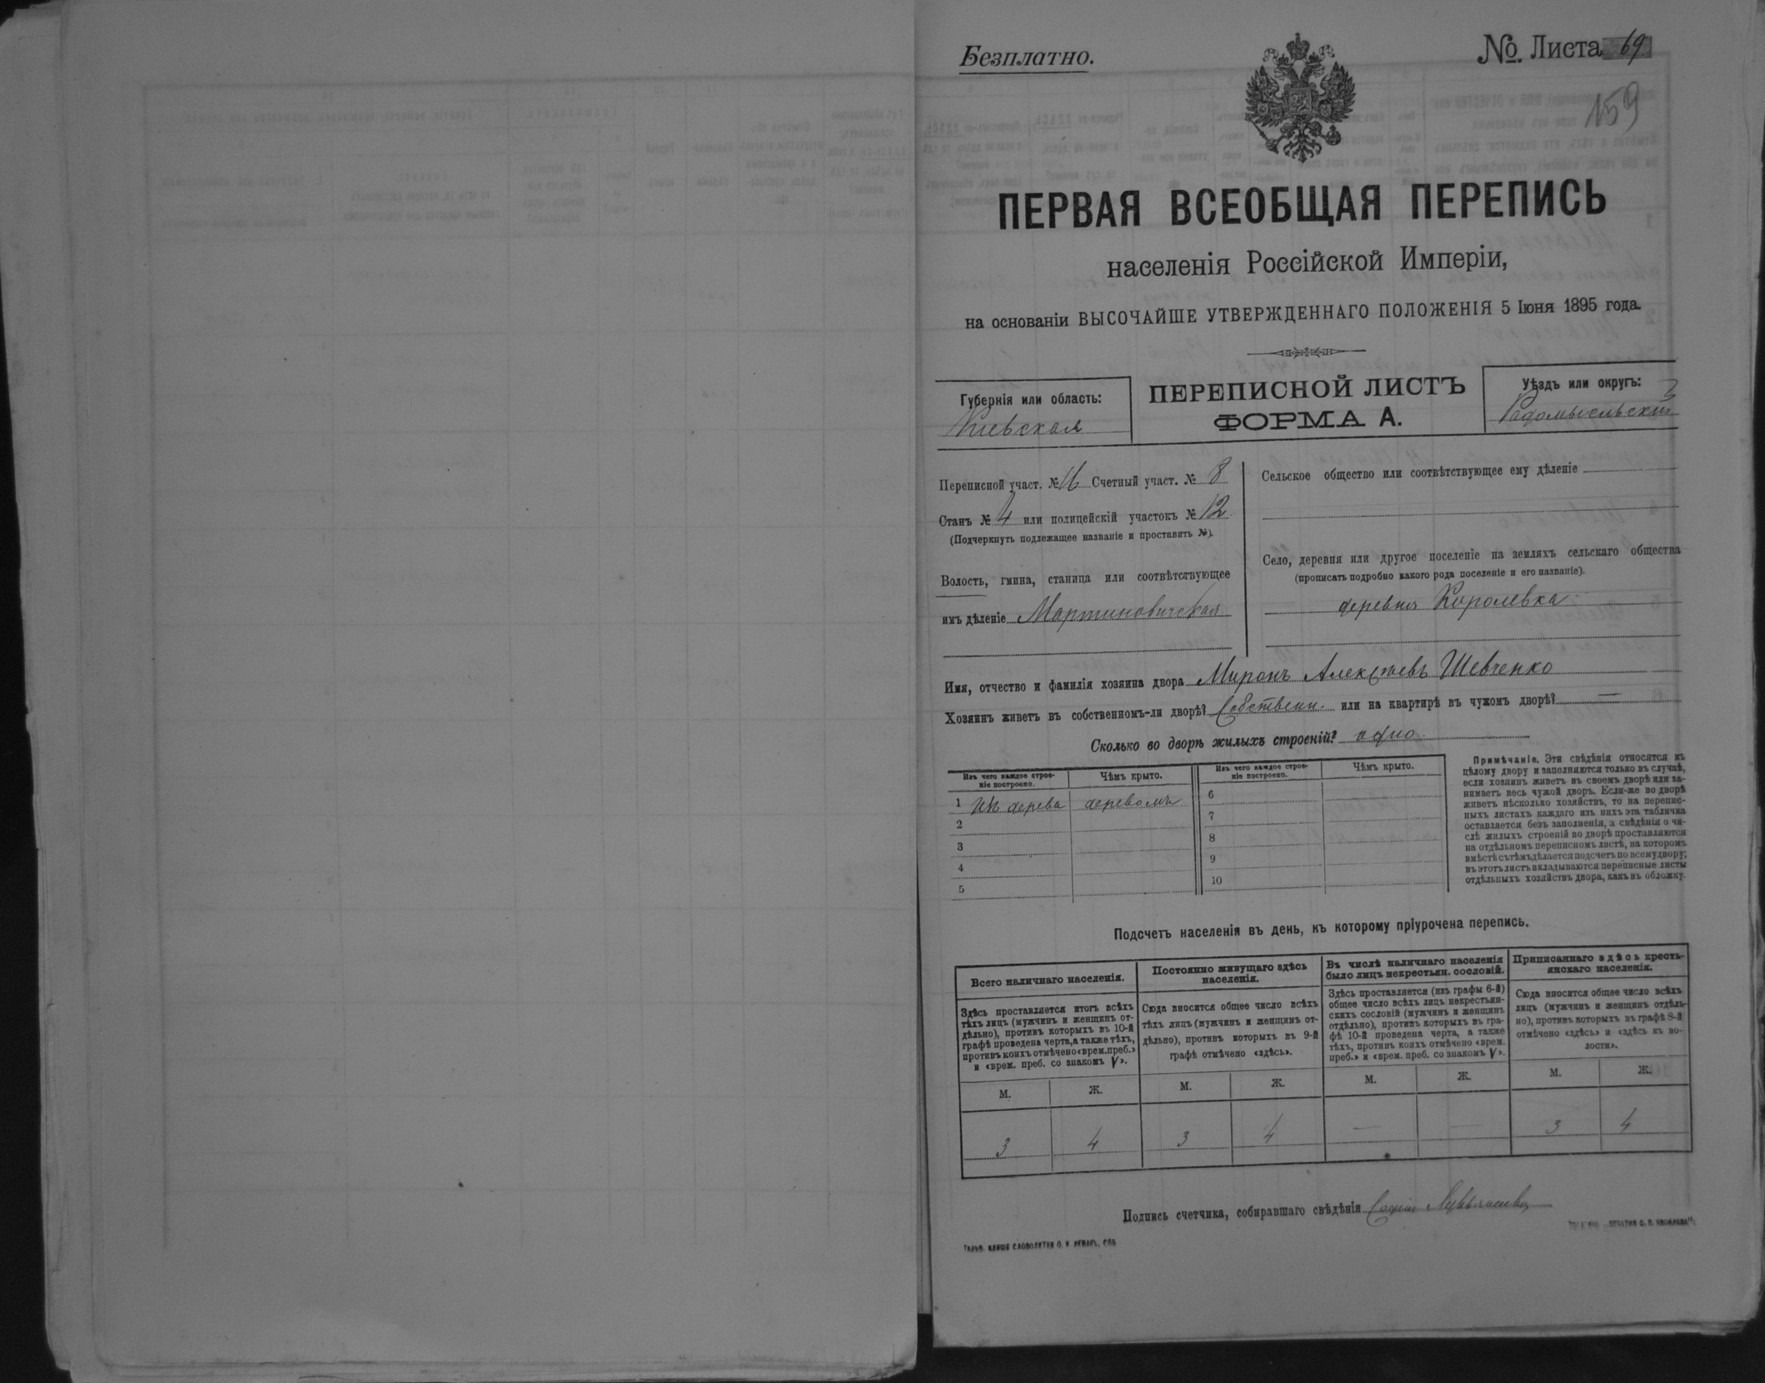 Безплатно.
№ Листа 69
159
ПЕРВАЯ ВСЕОБЩАЯ ПЕРЕПИСЬ
населенія Россійской Имперіи,
на основаніи ВЫСОЧАЙШЕ УТВЕРЖДЕННАГО ПОЛОЖЕНІЯ 5 Іюня 1895 года.
Губернія или область:
Кіевская
ПЕРЕПИСНОЙ ЛИСТЪ
ФОРМА А.
Уѣздъ или округъ:
Радомысльскій
Переписной участ. № 16 Счетный участ. № 8
Станъ № 4 или полицейскій участокъ № 12
(Подчеркнуть подлежащее названіе и проставить №).
Волость, гмина, станица или соотвѣтствующее
имъ дѣленіе Мартиновичская
Сельское общество или соотвѣтствующее ему дѣленіе
Село, деревня или другое поселеніе на земляхъ сельскаго общества
(прописать подробно какого рода поселеніе и его названіе).
деревня Королевка
Имя, отчество и фамилія хозяина двора Миронъ Алексѣевъ Шевченко
Хозяинъ живетъ въ собственномъ-ли дворѣ? Собственн. или на квартирѣ въ чужомъ дворѣ? —
Сколько во дворѣ жилыхъ строеній? одно
Изъ чего каждое строе-
ніе построено.
Чѣмъ крыто.
1 изъ дерева деревомъ
2
3
4
5
Изъ чего каждое строе-
ніе построено.
Чѣмъ крыто.
6
7
8
9
10
Примѣчаніе. Эти свѣдѣнія относятся къ
цѣлому двору и заполняются только въ случаѣ,
если хозяинъ живетъ въ своемъ дворѣ или за-
нимаетъ весь чужой дворъ. Если-же во дворѣ
живетъ нѣсколько хозяйствъ, то на перепис-
ныхъ листахъ каждаго изъ нихъ эта табличка
оставляется безъ заполненія, а свѣдѣнія о чи-
слѣ жилыхъ строеній во дворѣ проставляются
на отдѣльномъ переписномъ листѣ, на которомъ
вмѣстѣ съ тѣмъ дѣлается подсчетъ по всему двору;
въ этотъ листъ вкладываются переписные листы
отдѣльныхъ хозяйствъ двора, какъ въ обложку.
Подсчетъ населенія въ день, къ которому пріурочена перепись.
Всего наличнаго населенія.
Здѣсь проставляется итогъ всѣхъ
тѣхъ лицъ (мужчинъ и женщинъ от-
дѣльно), противъ которыхъ въ 10-й
графѣ проведена черта, а также тѣхъ,
противъ коихъ отмѣчено «врем. преб.»
и «врем. преб. со знакомъ V».
М. Ж.
3 4
Постоянно живущаго здѣсь
населенія.
Сюда вносится общее число всѣхъ
тѣхъ лицъ (мужчинъ и женщинъ от-
дѣльно), противъ которыхъ въ 9-й
графѣ отмѣчено «здѣсь».
М. Ж.
3 4
Въ числѣ наличнаго населенія
было лицъ некрестьян. сословій.
Здѣсь проставляется (изъ графы 6-й)
общее число всѣхъ лицъ некрестьян-
скихъ сословій (мужчинъ и женщинъ
отдѣльно), противъ которыхъ въ гра-
фѣ 10-й проведена черта, а также
тѣхъ, противъ коихъ отмѣчено «врем.
преб.» и «врем. преб. со знакомъ V».
М. Ж.
— —
Приписаннаго здѣсь кресть-
янскаго населенія.
Сюда вносится общее число всѣхъ
лицъ (мужчинъ и женщинъ отдѣль-
но), противъ которыхъ въ графѣ 8-й
отмѣчено «здѣсь» и «здѣсь къ во-
лости».
М. Ж.
3 4
Подпись счетчика, собиравшаго свѣдѣнія